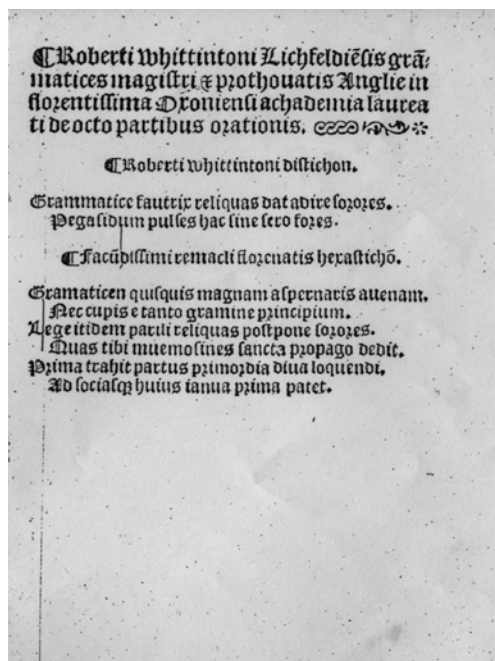 ¶Roberti whittintoni Lichfeldiēsis grā⸗
matices magistri ⁊ prothouatis Anglie in
florentissima Oxoniensi achademia laurea
ti de octo partibus orationis.
¶Roberti whittintoni distichon.
Grammatice fautrix reliquas dat adire sorores.
Pegasidum pulses hac sine sero fores.
¶Facūdissimi remacli florenatis hexastichō.
Gramaticen quisquis magnam aspernaris auenam.
Nec cupis e tanto gramine principium.
Lege itidem parili reliquas postpone sorores.
Quas tibi muemosines sancta propago dedit.
Prima trahit partus primordia diua loquendi.
Ad sociasqꝫ huius ianua prima patet.